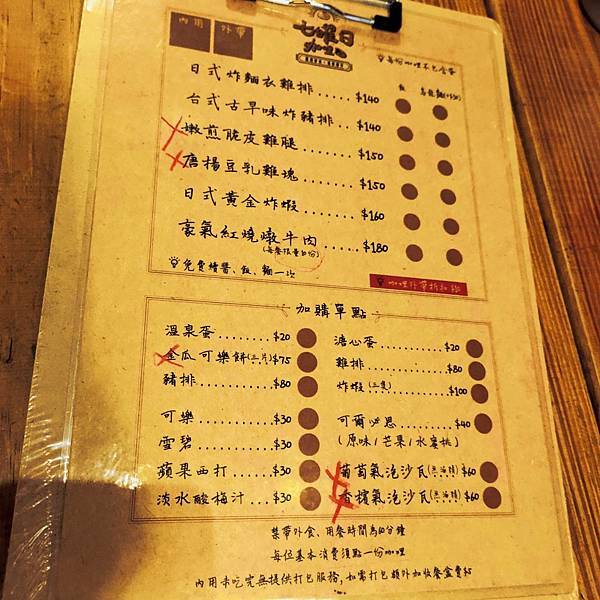 內用 外帶
七曜日
咖哩
每份咖哩不包含蛋
飯
日式炸麵衣雞排......$140
台式古早味炸豬排....$140
嫩煎脆皮雞腿.......$150
唐揚豆乳雞塊.......$150
日式黃金炸蝦.......$160
豪氣紅燒燉牛肉.....$180
免費續醬、飯、麵一次
咖哩外帶折扣
加購單點
溫泉蛋........$20
金瓜可樂餅(二片)$75
豬排..........$80
可樂..........$30
雪碧..........$30
蘋果西打......$30
淡水酸梅汁...$30
溏心蛋........$20
雞排..........$80
炸蝦(二隻)......$100
可爾必思......$40
(原味/芒果/水蜜桃)
葡萄氣泡沙瓦(無酒精)$60
香檳氣泡沙瓦(無酒精)$60
禁帶外食、用餐時間為60分鐘
每位基本消費須點一份咖哩
內用未吃完無提供打包服務,如需打包額外加收餐盒費$5